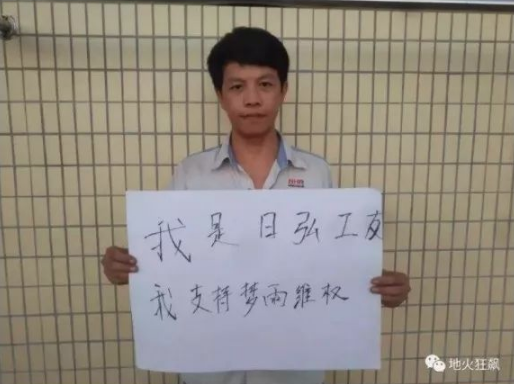 我是日弘工友
我支持梦雨維权
地火狂飙